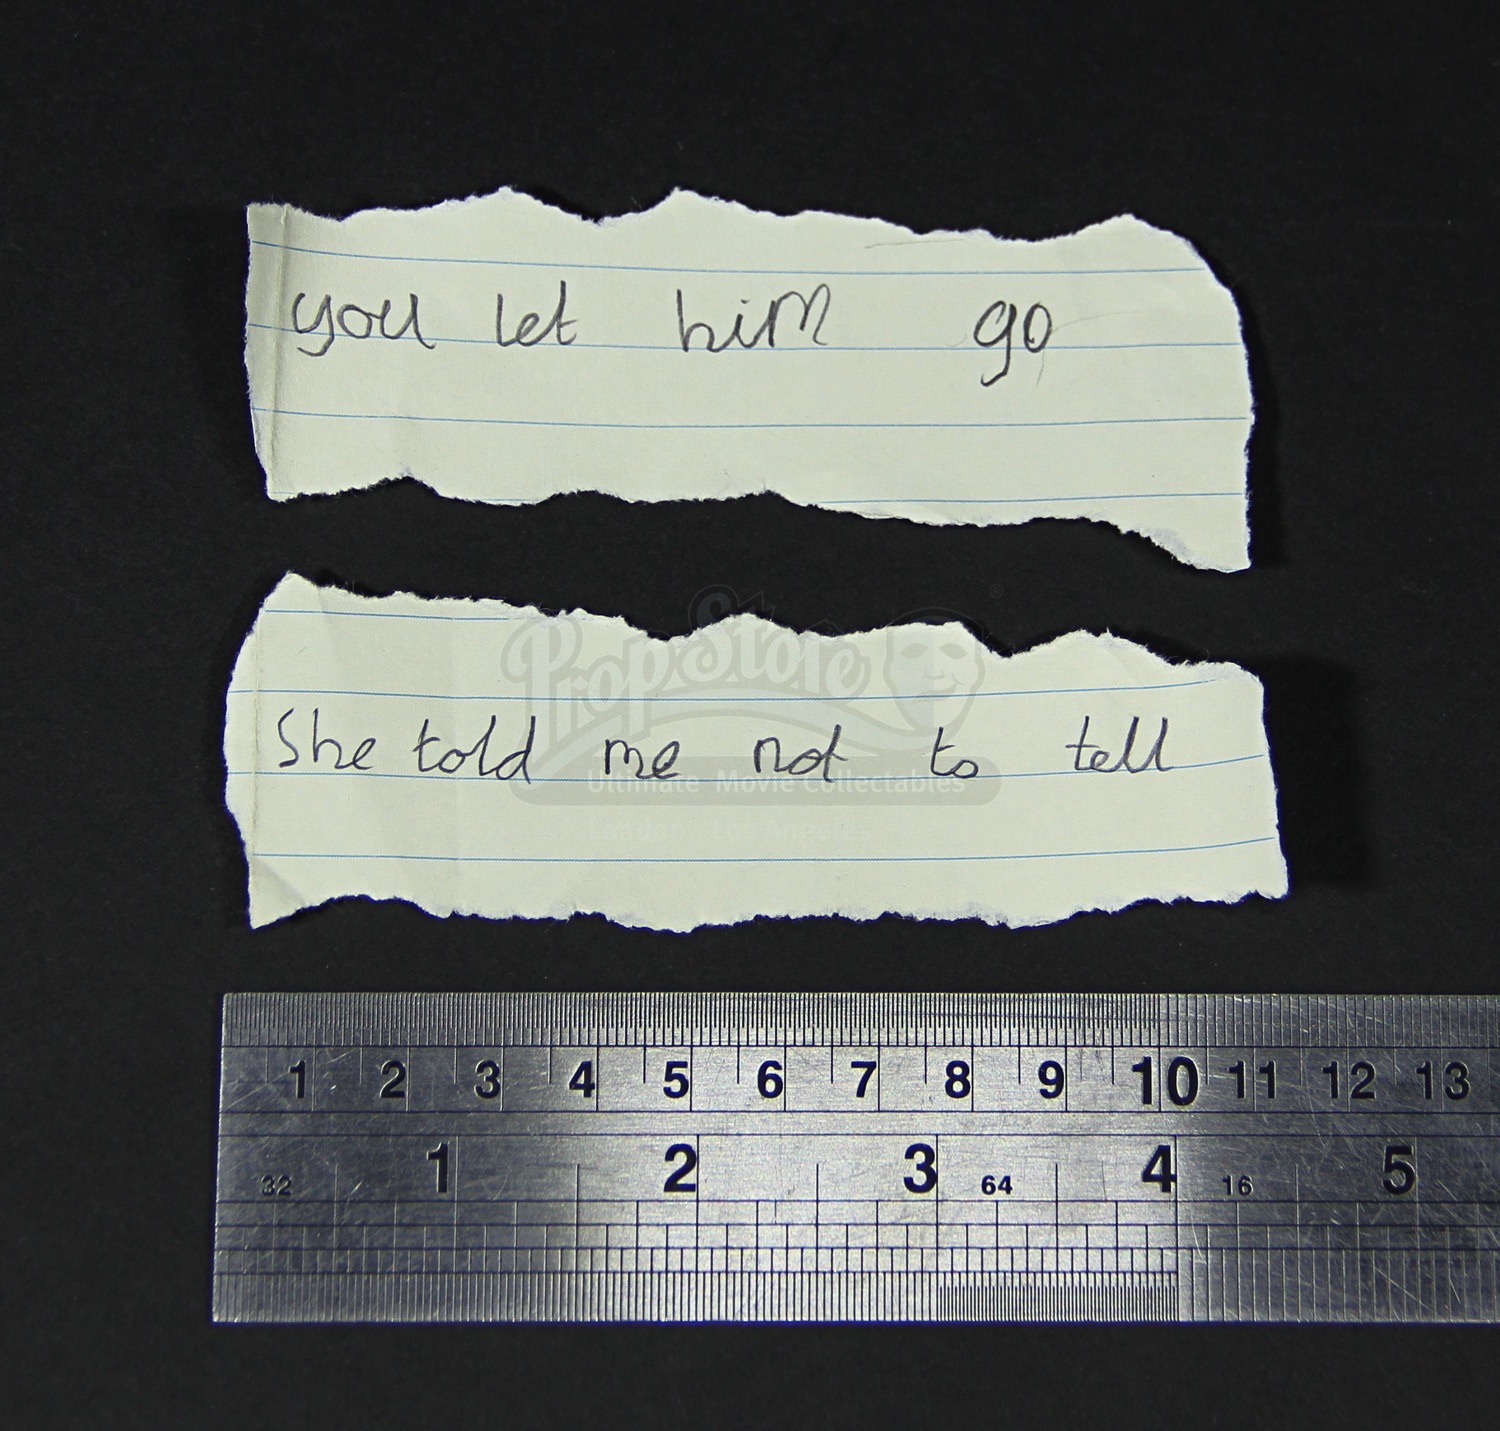 you let him go
She told me not to tell
PropStore
®
Ultimate Movie Collectables
1 2 3 4 5 6 7 8 9 10 11 12 13
1 2 3 4 5
32 64 16